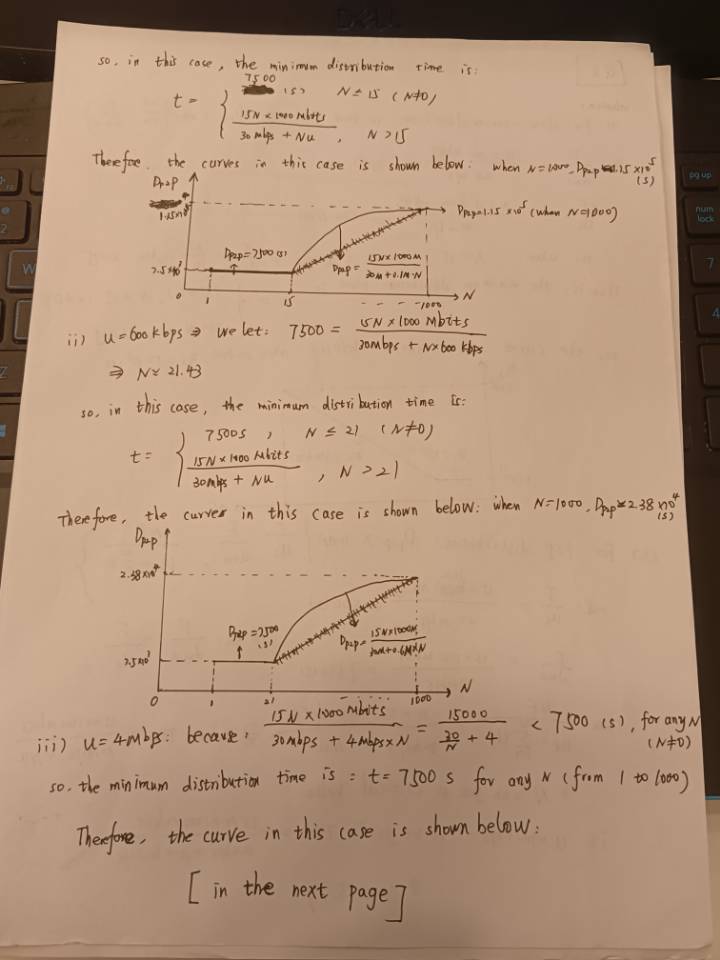 DELL
so, in this case, the minimum distribution time is:
t = { 7500 (s) N ≤ 15 (N≠0)
15N × 1000 Mbits / 30 mbps + Nu , N > 15
Therefore, the curves in this case is shown below: when N=1000, Dp2p ≈ 1.15 × 10⁵ (s)
Dp2p
1.15×10⁵
Dp2p=1.15 ×10⁵ (when N=1000)
Dp2p=7500(s)
Dp2p = 15N×1000M / 30M+0.1M·N
7.5×10³
0 1 15 1000 N
ii) u=600kbps ⇒ we let: 7500 = 15N × 1000 Mbits / 30mbps + N×600 kbps
⇒ N ≈ 21.43
so, in this case, the minimum distribution time is:
t = { 7500s , N ≤ 21 (N≠0)
15N × 1000 Mbits / 30mbps + Nu , N > 21
Therefore, the curves in this case is shown below: when N=1000, Dp2p ≈ 2.38 ×10⁴ (s)
Dp2p
2.38×10⁴
Dp2p=7500 (s)
Dp2p = 15N×1000M / 30M+0.6M×N
7.5×10³
0 1 21 1000 N
iii) u=4Mbps: because, 15N × 1000 Mbits / 30mbps + 4mbps×N = 15000 / 30/N + 4 < 7500 (s), for any N (N≠0)
so, the minimum distribution time is : t = 7500 s for any N (from 1 to 1000)
Therefore, the curve in this case is shown below:
[in the next page]
pg up
num lock
7
4
1
2
W
Z